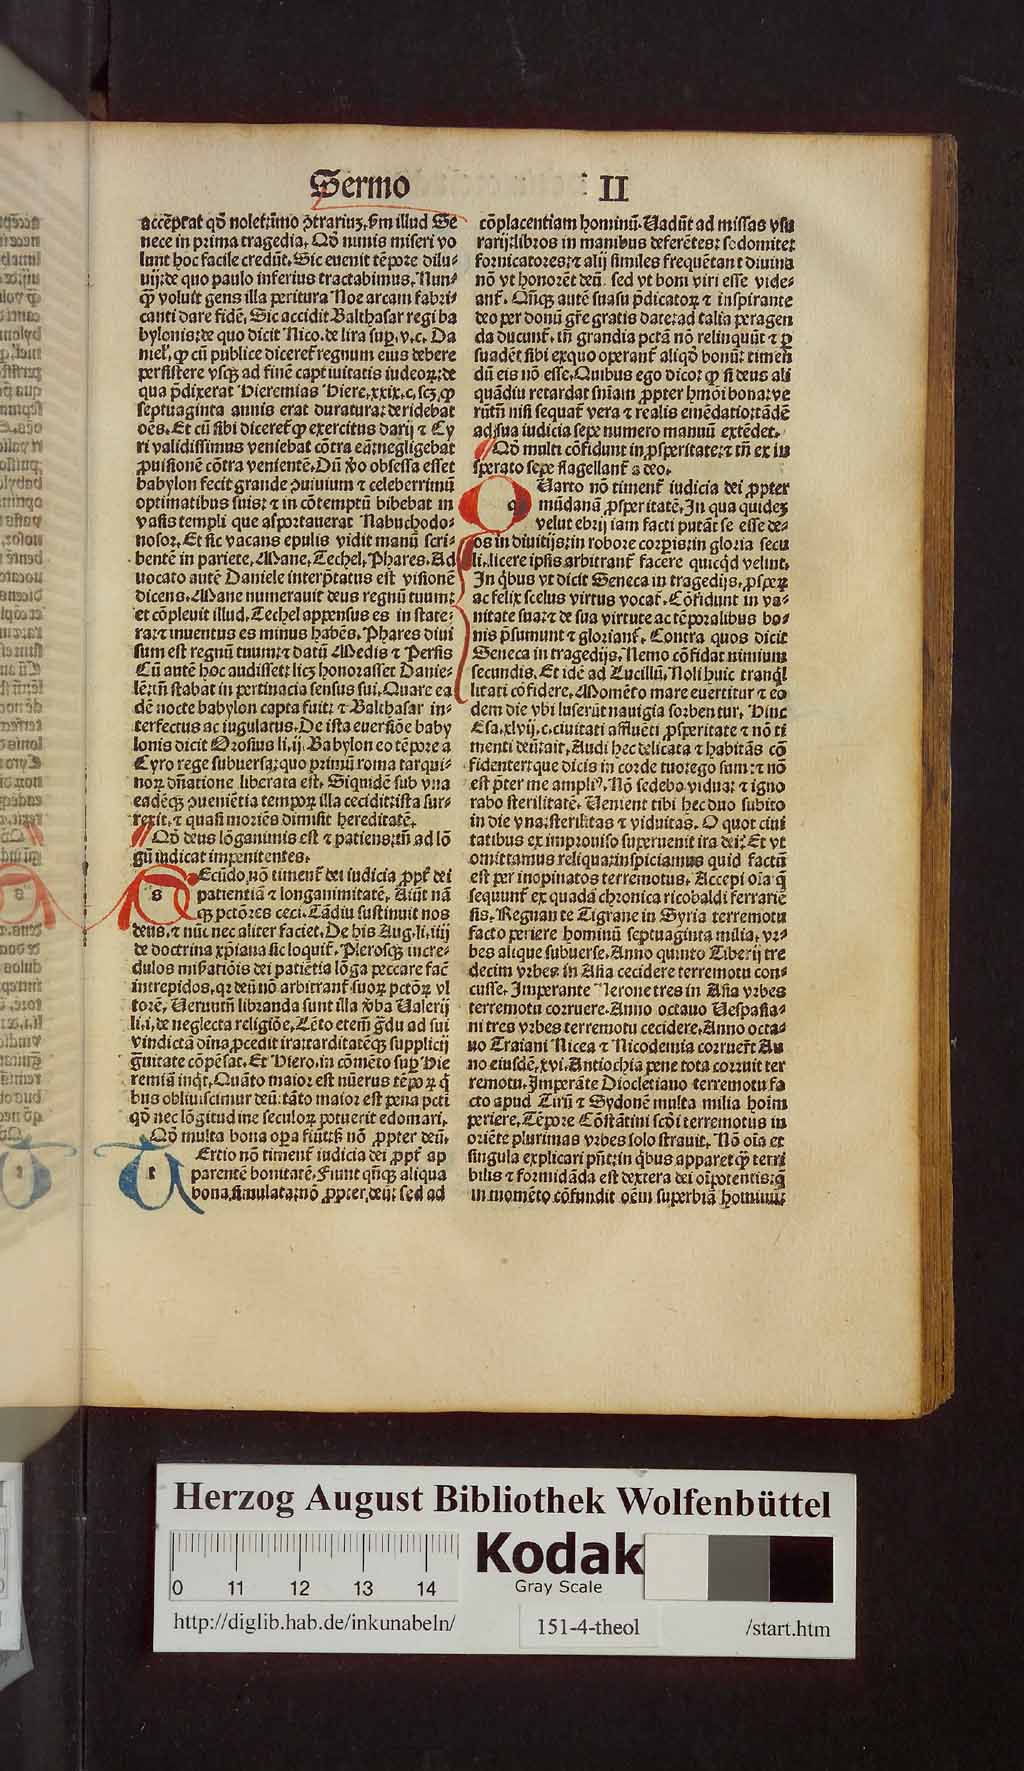 Sermo II
acceptat qd̄ nolet: īmo ꝯ̄trariuꝫ, ẜm illud Se
nece in prima tragedia. Qd̄ nimis miseri vo
lunt hoc facile credūt. Sic euenit tēpore dilu-
uij: de quo paulo inferius tractabimus. Nun-
q̄ꝫ voluit gens illa peritura Noe arcam fabri-
canti dare fidē. Sic accidit Balthasar regi ba
bylonis: de quo dicit Nico. de lira sup̄. v. c. Da
niel. ꝙ cū publice diceret̄ regnum eius debere
persistere vsqꝫ ad finē captiuitatis iudeoꝝ: de
qua p̄dixerat Hieremias Hiere. xxix. c. scꝫ ꝙ
septuaginta annis erat duratura: deridebat
oēs. Et cū sibi diceret̄ ꝙ exercitus darij ⁊ Cy
ri validissimus veniebat cōtra eā: negligebat
ꝓuisionē cōtra venientē. Dū ꝟo obsessa esset
babylon fecit grande ꝯuiuium ⁊ celeberrimū
optimatibus suis: ⁊ in cōtemptū bibebat in
vasis templi que asportauerat Nabuchodo-
nosor. Et sic vacans epulis vidit manū scri-
bentē in pariete. Mane. Techel. Phares. Ad
uocato autē Daniele interp̄tatus est visionē
dicens. Mane numerauit deus regnū tuum:
et cōpleuit illud. Techel appensus es in state-
ra: ⁊ inuentus es minus habēs. Phares diui
sum est regnū tuum: ⁊ datū Medis ⁊ Persis
Cū autē hoc audisset: licꝫ honorasset Danie-
lē: tn̄ stabat in pertinacia sensus sui. Quare ea
dē nocte babylon capta fuit: ⁊ Balthasar in-
terfectus ac iugulatus. De ista euersiōe baby
lonis dicit Orosius li. ij. Babylon eo tēpore a
Cyro rege subuersa: quo primū roma tarqui-
nioꝝ dn̄atione liberata est. Siquidē sub vna
eadēqꝫ ꝯueniētia tempoꝝ illa cecidit: ista sur-
rexit. ⁊ quasi moriēs dimisit hereditatē.
Qd̄ deus lōganimis est ⁊ patiens: tn̄ ad lō
gū iudicat impenitentes.
Ecūdo nō timent̄ dei iudicia ꝓpt̄ dei
patientiā ⁊ longanimitatē. Aiūt nā
qꝫ pctōres ceci. Tādiu sustinuit nos
deus. ⁊ nūc nec aliter faciet. De his Aug. li. iiij
de doctrina xp̄iana sic loquit̄. Plerosqꝫ incre-
dulos misatiōis dei patiētia lōga peccare fac̄
intrepidos. qꝛ deū nō arbitrant̄ suoꝝ pctōꝝ vl
torē. Veruntn̄ libranda sunt illa ꝟba Valerij
li. i. de neglecta religiōe. Lēto etem̄ gradu ad sui
vindictā diuina ꝓcedit ira: tarditatēqꝫ supplicij
grauitate cōpēsat. Et Hiero. in cōmēto sup̄ Hie
remiā inqt. Quāto maior est nūerus tēpoꝝ q̄
bus obliuiscimur deū: tāto maior est pena pctī
qd̄ nec lōgitudine seculoꝝ potuerit edomari.
Qd̄ multa bona oꝑa fiūt: sꝫ nō ꝓpter deū.
Ertio nō timent̄ iudicia dei ꝓpt̄ ap
parentē bonitatē. Fiunt qn̄qꝫ aliqua
bona simulata: nō ꝓpter deū: sed ad
cōplacentiam hominū. Vadūt ad missas vsu
rarij: libros in manibus deferētes: sodomite:
fornicatores: ⁊ alij similes frequētant diuina
nō vt honorēt deū. sed vt boni viri esse vide-
ant̄. Qn̄qꝫ autē suasu p̄dicatoꝝ ⁊ inspirante
deo per donū gr̄e gratis date: ad talia peragen
da ducunt̄. in̄ grandia pctā nō relinquūt ⁊ ꝑ
suadēt sibi exquo operant̄ aliqd̄ bonū: timen
dū eis nō esse. Quibus ego dico: ꝙ si deus ali
quādiu retardat sn̄iam ꝓpter hmōi bona: ve
rūtn̄ nisi sequat̄ vera ⁊ realis emēdatio: tādē
ad sua iudicia sepe numero manuū extēdet.
Qd̄ multi cōfidunt in ꝓsperitate: ⁊ tn̄ ex in
sperato sepe flagellant̄ a deo.
Uarto nō timent̄ iudicia dei ꝓpter
mūdanā ꝓsperitatē. In qua quideꝫ
velut ebrij iam facti putāt se esse de-
os in diuitijs: in robore corꝑis: in gloria secu
li. licere ipsis arbitrant̄ facere quicqd velint.
In qbus vt dicit Seneca in tragedijs, ꝓspeꝝ
ac felix scelus virtus vocat̄. Cōfidunt in va-
nitate sua: ⁊ de sua virtute ac tēporalibus bo-
nis p̄sumunt ⁊ gloriant̄. Contra quos dicit
Seneca in tragedijs. Nemo cōfidat nimium
secundis. Et idē ad Lucillū. Noli huic tranql
litati cōfidere. Momēto mare euertitur ⁊ eo
dem die vbi luserūt nauigia sorbentur. Hinc
Esa. xlvij. c. ciuitati affluēti ꝓsperitate ⁊ nō ti
menti deū: ait. Audi hec delicata ⁊ habitās cō
fidenter: que dicis in corde tuo: ego sum: ⁊ nō
est p̄ter me ampliꝰ. Nō sedebo vidua: ⁊ igno
rabo sterilitatē. Venient tibi hec duo subito
in die vna: sterilitas ⁊ viduitas. O quot ciui
tatibus ex improuiso superuenit ira dei: Et vt
omittamus reliqua: inspiciamus quid factū
est per inopinatos terremotus. Accepi oīa q̄
sequunt̄ ex quadā chronica ricobaldi ferrariē
sis. Regnante Tigrane in Syria terremotu
facto periere hominū septuaginta milia. vr-
bes alique subuerse. Anno quinto Tiberij tre
decim vrbes in Asia cecidere terremotu con-
cusse. Imperante Nerone tres in Asia vrbes
terremotu corruere. Anno octauo Vespasia-
ni tres vrbes terremotu cecidere. Anno octa-
uo Traiani Nicea ⁊ Nicodemia corruer̄t An
no eiusdē. xvi. Antiochia pene tota corruit ter
remotu. Imperāte Diocletiano terremotu fa
cto apud Tirū ⁊ Sydonē multa milia hoīm
periere. Tēpore Cōstātini scdi terremotus in
oriēte plurimas vrbes solo strauit. Nō oīa et
singula explicari pn̄t: in qbus apparet ꝙ terri
bilis ⁊ formidāda est dextera dei oīpotentis: q̄
in momēto cōfundit oēm superbiā hominum
Herzog August Bibliothek Wolfenbüttel
0 11 12 13 14
Kodak
Gray Scale
http://diglib.hab.de/inkunabeln/ 151-4-theol /start.htm